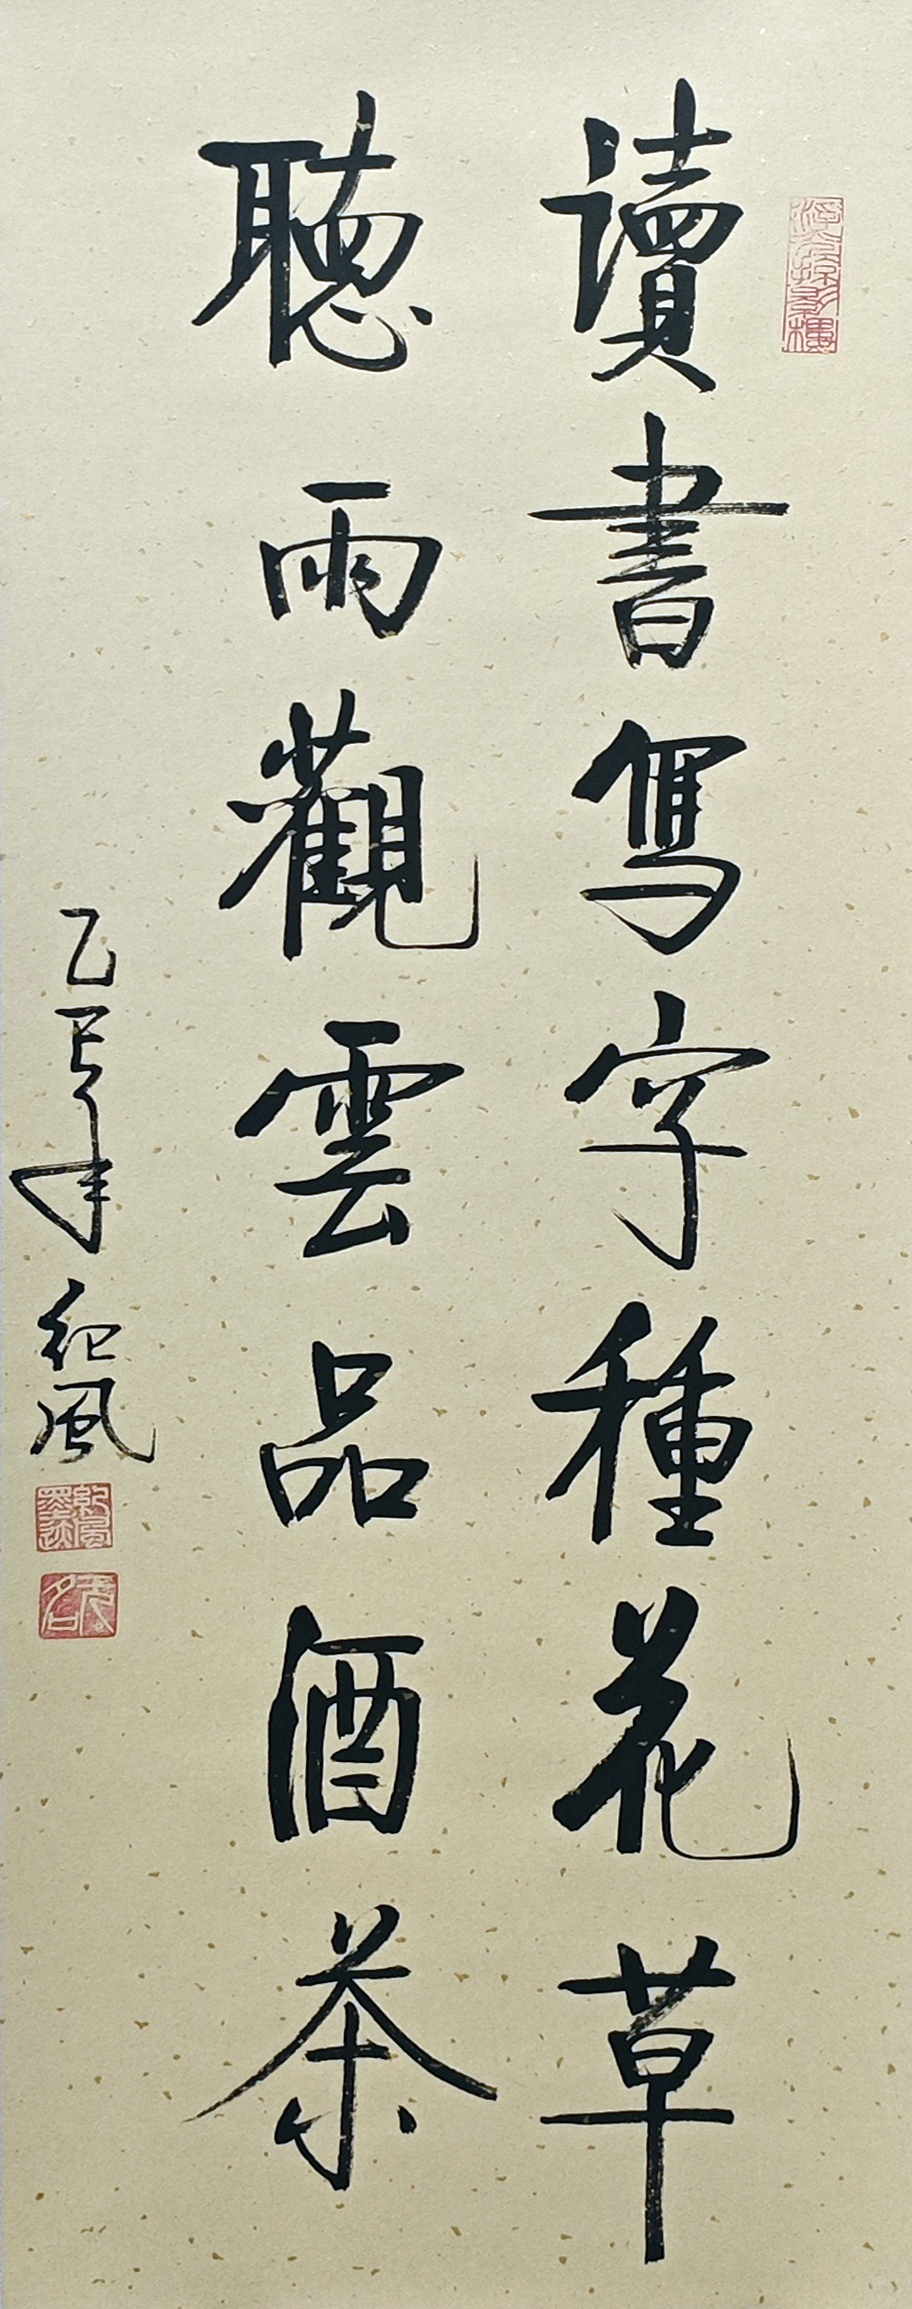 讀書寫字種花草
聽雨觀雲品酒茶
乙巳年紀風